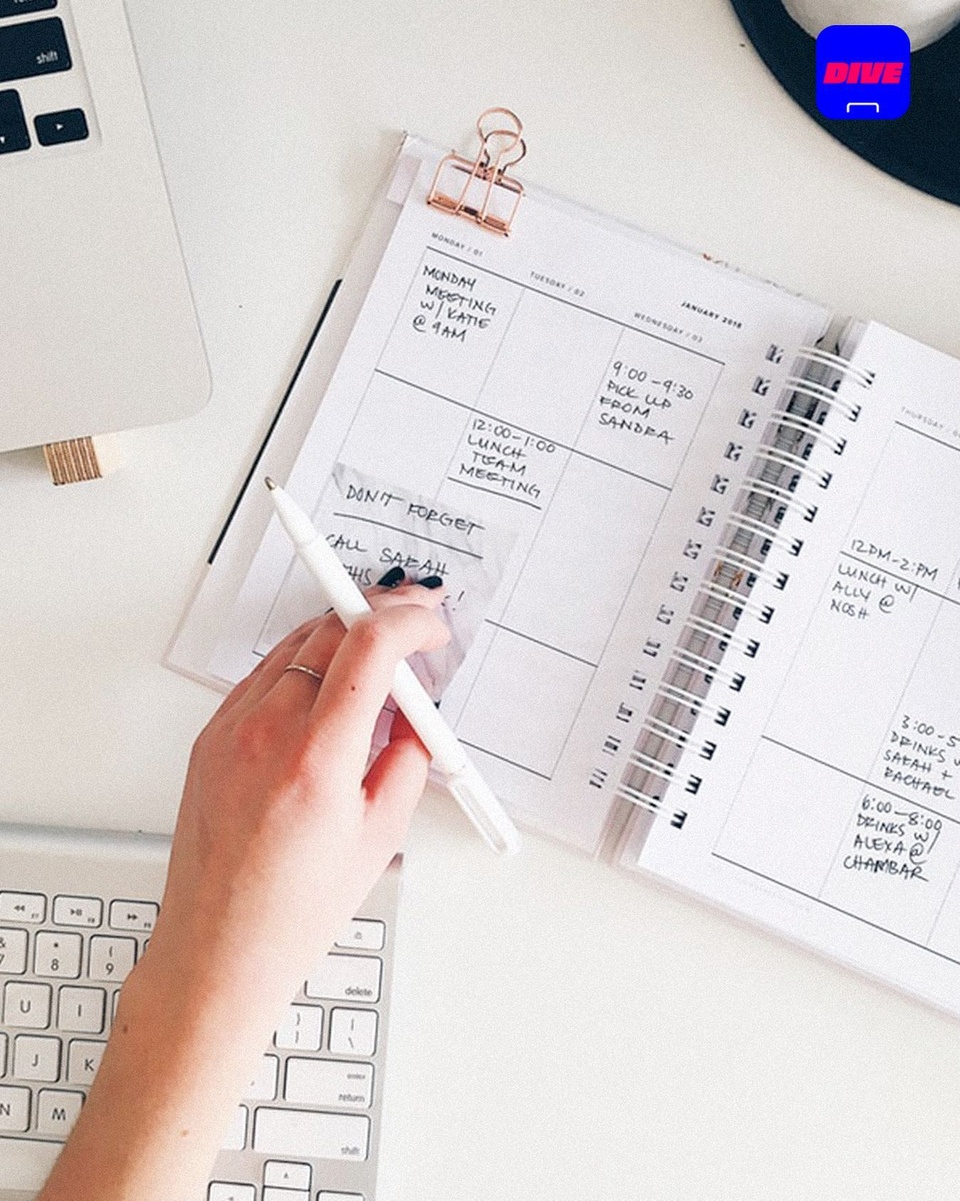 shift
DIVE
MONDAY / 01
TUESDAY / 02
JANUARY 2018
WEDNESDAY / 03
MONDAY
MEETING
W/ KATIE
@ 9AM
9:00-9:30
PICK UP
FROM
SANDRA
12:00-1:00
LUNCH
TEAM
MEETING
DON'T FORGET
CALL SARAH
THIS
!
12PM-2:PM
LUNCH W/
ALLY @
NOSH
3:00-5
DRINKS
SARAH +
RACHAEL
6:00-8:00
DRINKS W/
ALEXA @
CHAMBAR
F7 F8 F9
& 7 * 8 ( 9
delete
U I } ] | \
J K enter
return
N M
shift